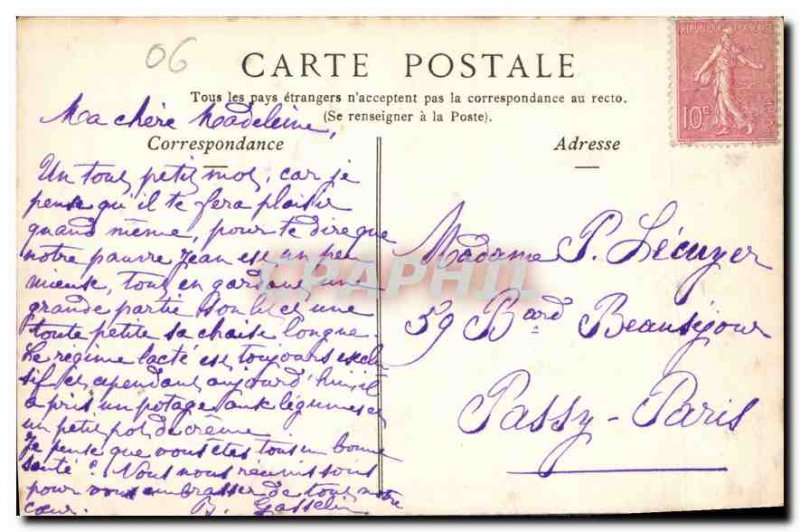 06
RÉPUBLIQUE FRANÇAISE
10c
CARTE POSTALE
Tous les pays étrangers n'acceptent pas la correspondance au recto.
(Se renseigner à la Poste).
Correspondance
Adresse
Ma chère Madeleine,
Un tout petit mot, car je
pense qu'il te fera plaisir
quand même, pour te dire que
notre pauvre Jean est un peu
mieux, tout en gardant une
grande partie son lit et une
toute petite sa chaise longue.
Le régime lacté est toujours exclu
sif et cependant aujourd'hui il
a pris un potage aux légumes et
un petit pot de crème.
Je pense que vous êtes tous en bonne
santé? Nous nous réunissons
pour vous embrasser de tout notre
cœur. B. Gosselin
Madame P. Lécuyer
59 Bard Beauséjour
Passy-Paris
CPAPHIL